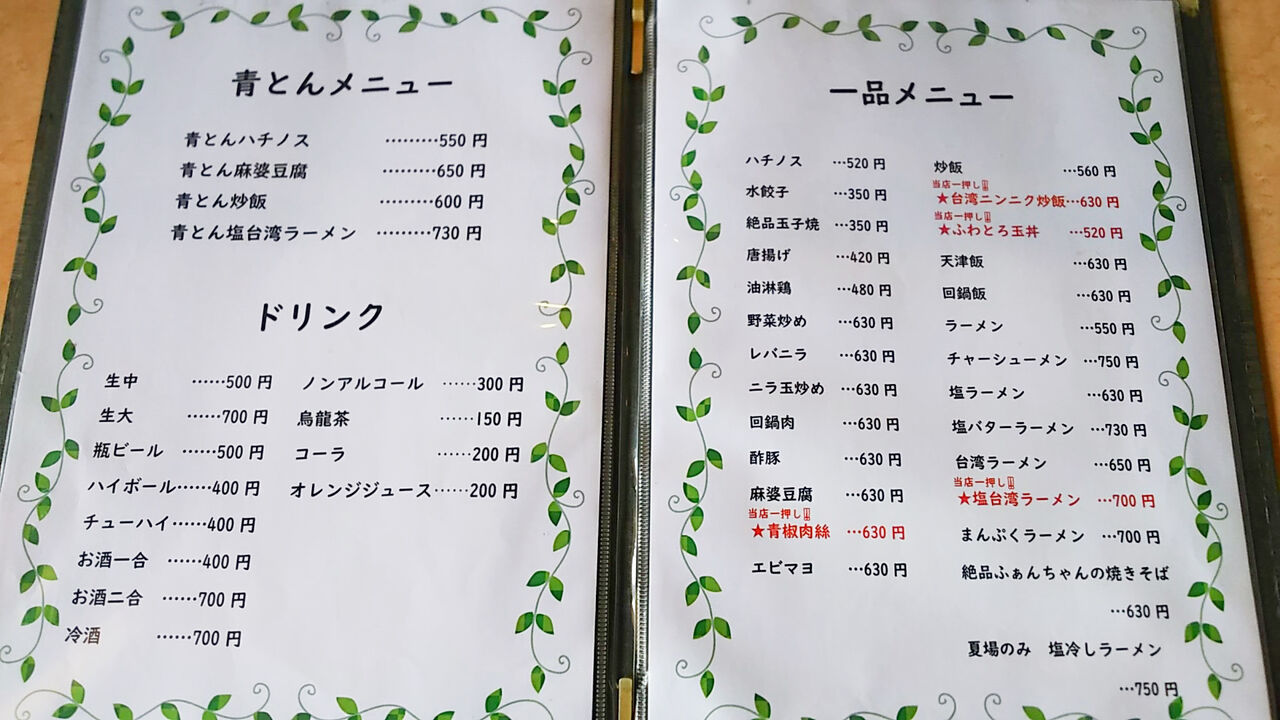 青とんメニュー
青とんハチノス ………550 円
青とん麻婆豆腐 ………650 円
青とん炒飯 ………600 円
青とん塩台湾ラーメン ………730 円
ドリンク
生中 ……500 円
生大 ……700 円
瓶ビール ……500 円
ハイボール……400 円
チューハイ……400 円
お酒一合 ……400 円
お酒二合 ……700 円
冷酒 ……700 円
ノンアルコール ……300 円
烏龍茶 ……150 円
コーラ ……200 円
オレンジジュース……200 円
一品メニュー
ハチノス …520 円
水餃子 …350 円
絶品玉子焼 …350 円
唐揚げ …420 円
油淋鶏 …480 円
野菜炒め …630 円
レバニラ …630 円
ニラ玉炒め …630 円
回鍋肉 …630 円
酢豚 …630 円
麻婆豆腐 …630 円
当店一押し!!
★青椒肉絲 …630 円
エビマヨ …630 円
炒飯 …560 円
当店一押し!!
★台湾ニンニク炒飯…630 円
当店一押し!!
★ふわとろ玉丼 …520 円
天津飯 …630 円
回鍋飯 …630 円
ラーメン …550 円
チャーシューメン …750 円
塩ラーメン …630 円
塩バターラーメン …730 円
台湾ラーメン …650 円
当店一押し!!
★塩台湾ラーメン …700 円
まんぷくラーメン …700 円
絶品ふぁんちゃんの焼きそば
…630 円
夏場のみ 塩冷しラーメン
…750 円